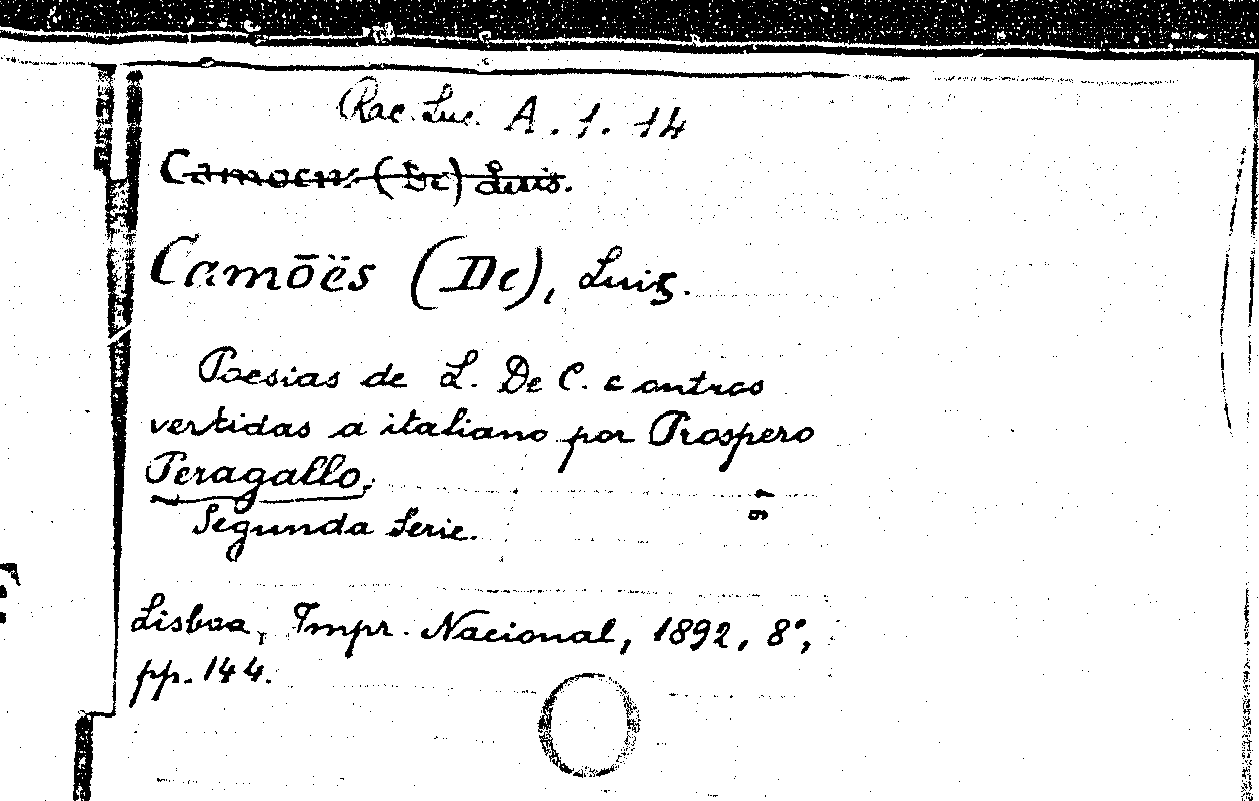 Rac. Luc. A. 1. 14
Camoens (De) Luis.
Camōës (De), Luiz.
Poesias de L. De C. e outros
vertidas a italiano por Prospero
Peragallo.
Segunda Serie.
Lisboa, Impr. Nacional, 1892, 8°,
pp. 144.